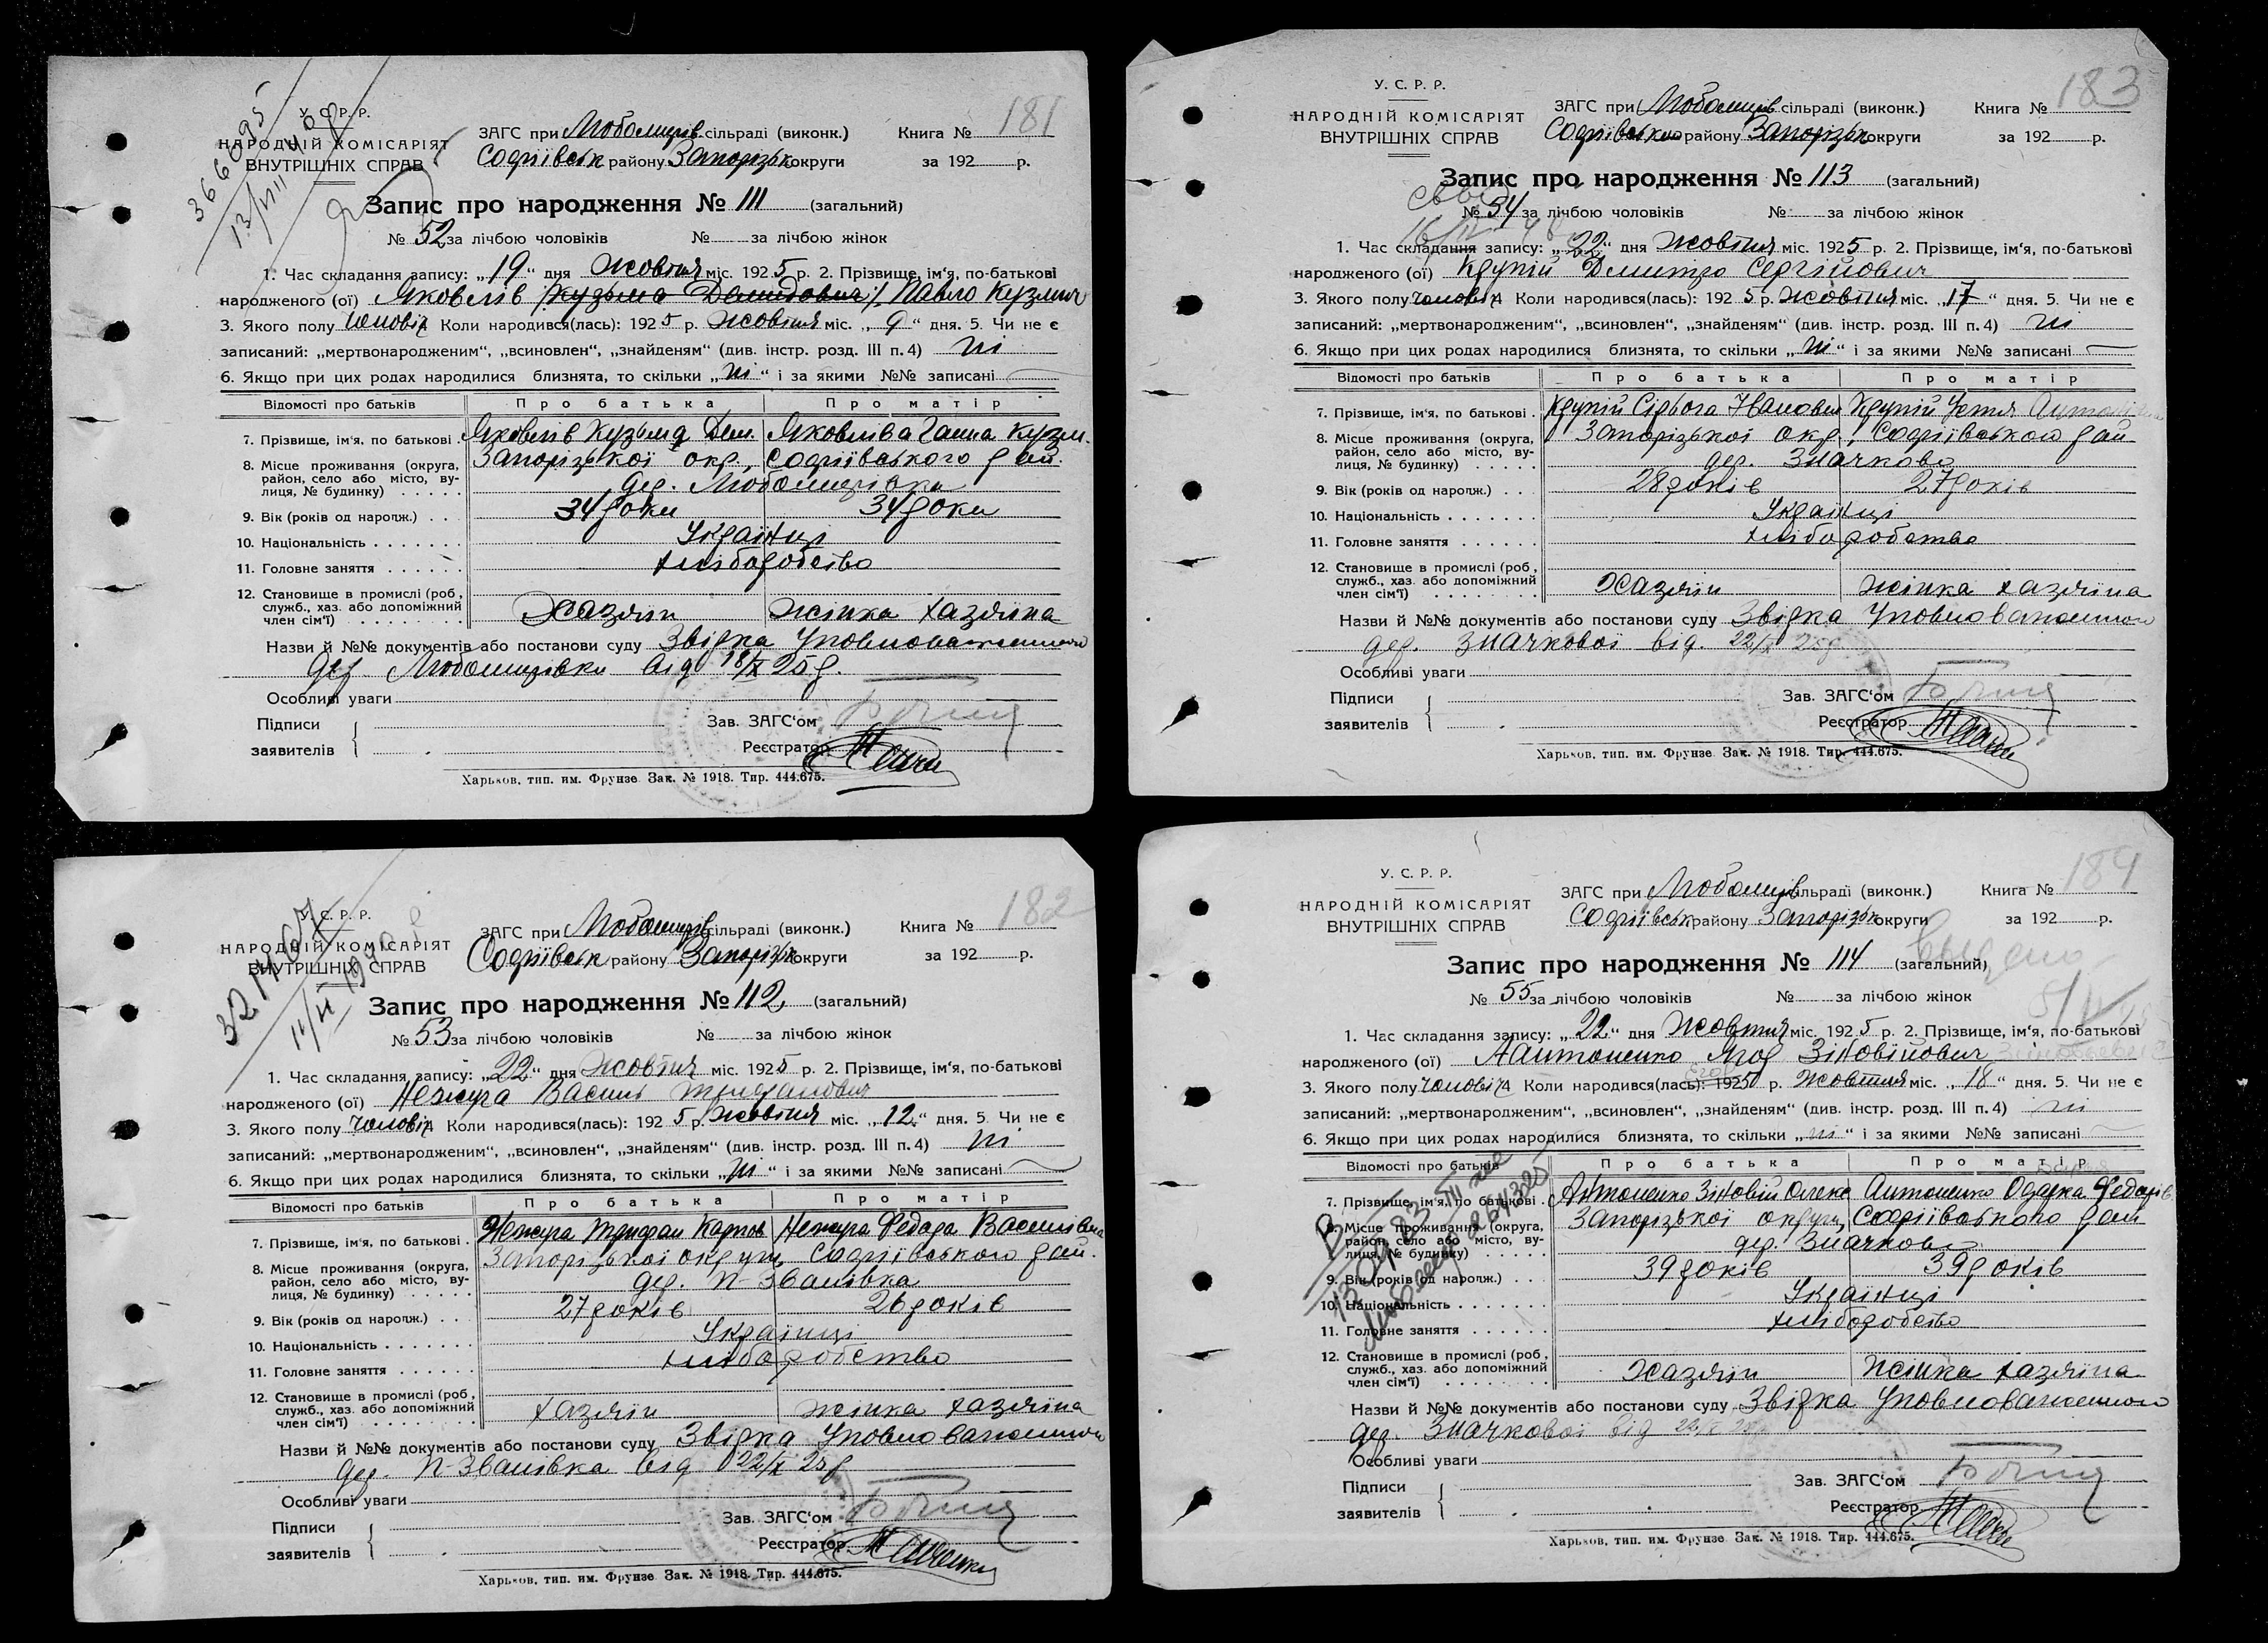 181
У. С. Р. Р.
НАРОДНІЙ КОМІСАРІЯТ
ВНУТРІШНІХ СПРАВ
ЗАГС при Любомирів сільраді (виконк.) Книга №
Софіївськ району Запорізьк округи за 192 р.
Запис про народження № 111 (загальний)
№ 52 за лічбою чоловіків № за лічбою жінок
1. Час складання запису: „19“ дня жовтня міс. 1925 р. 2. Прізвище, ім‘я, по-батькові
народженого (ої) Яковлів (Кузьма Демидович), Павло Кузмич
3. Якого полу чоловіч. Коли народився(лась): 1925 р. жовтня міс. „9“ дня. 5. Чи не є
записаний: „мертвонародженим“, „всиновлен“, „знайденям“ (див. інстр. розд. III п. 4) ні
6. Якщо при цих родах народилися близнята, то скільки „ні“ і за якими №№ записані
Відомості про батьків Про батька Про матір
7. Прізвище, ім‘я, по батькові Яковлів Кузьма Дем. Яковліва Ганна Кузм.
8. Місце проживання (округа, район, село або місто, вулиця, № будинку) Запорізької окр., Софіївського рай.
дер. Любомирівка
9. Вік (років од нарODж.) 34 роки 34 роки
10. Національність Українці
11. Головне заняття хліборобство
12. Становище в промислі (роб., служб., хаз. або допоміжний член сім‘ї) Хазяїн жінка хазяїна
Назви й №№ документів або постанови суду Звірка Уповноваженного
дер. Любомирівки від 18/X 25 р.
Особливі уваги
Підписи
заявителів
Зав. ЗАГС‘ом
Реєстратор
Харьков, тип. им. Фрунзе Зак. № 1918. Тир. 444.675.
183
У. С. Р. Р.
НАРОДНІЙ КОМІСАРІЯТ
ВНУТРІШНІХ СПРАВ
ЗАГС при Любомирів сільраді (виконк.) Книга №
Софіївського району Запорізьк округи за 192 р.
Запис про народження № 113 (загальний)
№ 54 за лічбою чоловіків № за лічбою жінок
1. Час складання запису: „22“ дня жовтня міс. 1925 р. 2. Прізвище, ім‘я, по-батькові
народженого (ої) Крупій Дмитро Сергійович
3. Якого полу чоловіч. Коли народився(лась): 1925 р. жовтня міс. „17“ дня. 5. Чи не є
записаний: „мертвонародженим“, „всиновлен“, „знайденям“ (див. інстр. розд. III п. 4) ні
6. Якщо при цих родах народилися близнята, то скільки „ні“ і за якими №№ записані
Відомості про батьків Про батька Про матір
7. Прізвище, ім‘я, по батькові Крупій Сірьога Іванович Крупій Устя
8. Місце проживання (округа, район, село або місто, вулиця, № будинку) Запорізької окр., Софіївського рай
дер. Значково
9. Вік (років од нарODж.) 28 років 27 років
10. Національність Українці
11. Головне заняття хліборобство
12. Становище в промислі (роб., служб., хаз. або допоміжний член сім‘ї) Хазяїн жінка хазяїна
Назви й №№ документів або постанови суду Звірка Уповноваженного
дер. Значкової від. 22/X 25 р
Особливі уваги
Підписи
заявителів
Зав. ЗАГС‘ом
Реєстратор
Харьков, тип. им. Фрунзе Зак. № 1918. Тир. 444.675.
182
У. С. Р. Р.
НАРОДНІЙ КОМІСАРІЯТ
ВНУТРІШНІХ СПРАВ
ЗАГС при Любомирів сільраді (виконк.) Книга №
Софіївськ району Запорізьк округи за 192 р.
Запис про народження № 112 (загальний)
№ 53 за лічбою чоловіків № за лічбою жінок
1. Час складання запису: „22“ дня жовтня міс. 1925 р. 2. Прізвище, ім‘я, по-батькові
народженого (ої) Нежура Василь Трифанович
3. Якого полу чоловіч. Коли народився(лась): 1925 р. жовтня міс. „12“ дня. 5. Чи не є
записаний: „мертвонародженим“, „всиновлен“, „знайденям“ (див. інстр. розд. III п. 4) ні
6. Якщо при цих родах народилися близнята, то скільки „ні“ і за якими №№ записані
Відомості про батьків Про батька Про матір
7. Прізвище, ім‘я, по батькові Нежура Трифан Карпов Нежура Федора Василівна
8. Місце проживання (округа, район, село або місто, вулиця, № будинку) Запорізької округи, Софіївського рай.
дер. П-Званівка
9. Вік (років од нарODж.) 27 років 26 років
10. Національність Українці
11. Головне заняття хліборобство
12. Становище в промислі (роб., служб., хаз. або допоміжний член сім‘ї) хазяїн жінка хазяїна
Назви й №№ документів або постанови суду Звірка Уповноваженного
дер. П-Званівка від 22/X 25 р
Особливі уваги
Підписи
заявителів
Зав. ЗАГС‘ом
Реєстратор
Харьков, тип. им. Фрунзе Зак. № 1918. Тир. 444.675.
184
У. С. Р. Р.
НАРОДНІЙ КОМІСАРІЯТ
ВНУТРІШНІХ СПРАВ
ЗАГС при Любомирів сільраді (виконк.) Книга №
Софіївськ району Запорізьк округи за 192 р.
Запис про народження № 114 (загальний)
№ 55 за лічбою чоловіків № за лічбою жінок
1. Час складання запису: „22“ дня жовтня міс. 1925 р. 2. Прізвище, ім‘я, по-батькові
народженого (ої) Антоненко Ягор Зіновійович
3. Якого полу чоловіч. Коли народився(лась): 1925 р. жовтня міс. „18“ дня. 5. Чи не є
записаний: „мертвонародженим“, „всиновлен“, „знайденям“ (див. інстр. розд. III п. 4) ні
6. Якщо при цих родах народилися близнята, то скільки „ні“ і за якими №№ записані
Відомості про батьків Про батька Про матір
7. Прізвище, ім‘я, по батькові Антоненко Зіновій Олекс Антоненко Одарка Федорів
8. Місце проживання (округа, район, село або місто, вулиця, № будинку) Запорізької округи, Софіївського рай
дер. Значково
9. Вік (років од нарODж.) 39 років 39 років
10. Національність Українці
11. Головне заняття хліборобство
12. Становище в промислі (роб., служб., хаз. або допоміжний член сім‘ї) Хазяїн жінка хазяїна
Назви й №№ документів або постанови суду Звірка Уповноваженного
дер. Значкової від 22/X 25
Особливі уваги
Підписи
заявителів
Зав. ЗАГС‘ом
Реєстратор
Харьков, тип. им. Фрунзе Зак. № 1918. Тир. 444.675.